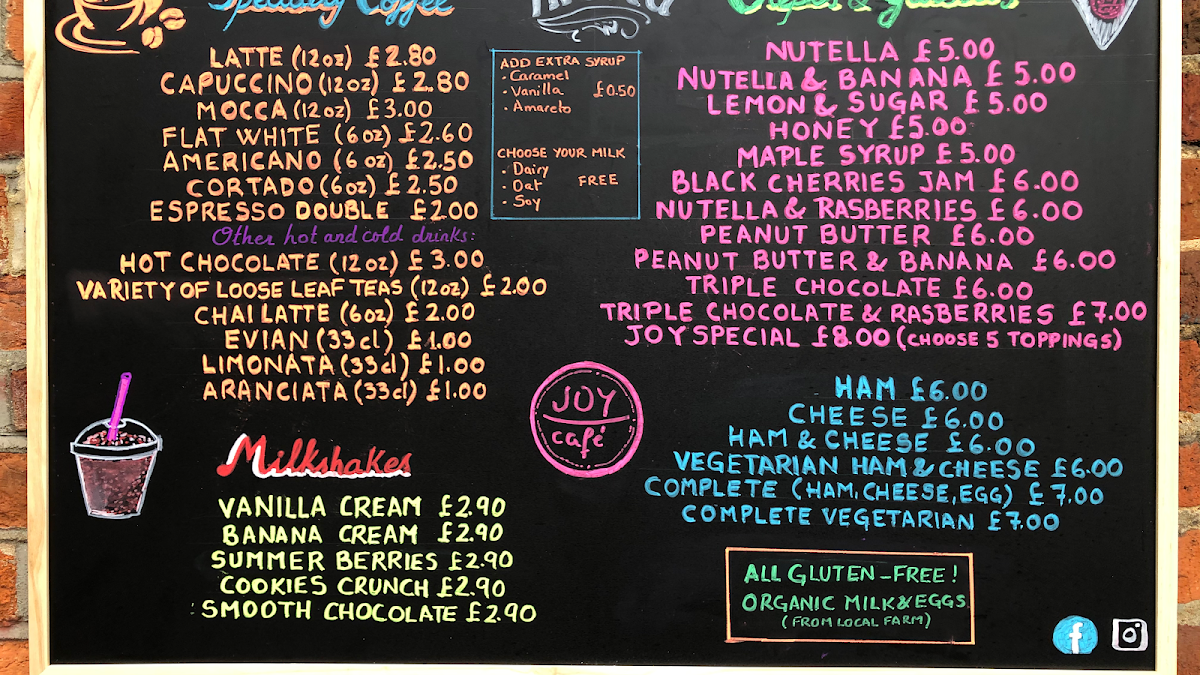 Specialty Coffee
LATTE (12oz) £2.80
CAPUCCINO (12oz) £2.80
MOCCA (12oz) £3.00
FLAT WHITE (6oz) £2.60
AMERICANO (6oz) £2.50
CORTADO (6oz) £2.50
ESPRESSO DOUBLE £2.00
Other hot and cold drinks:
HOT CHOCOLATE (12oz) £3.00
VARIETY OF LOOSE LEAF TEAS (12oz) £2.00
CHAI LATTE (6oz) £2.00
EVIAN (33cl) £1.00
LIMONATA (33cl) £1.00
ARANCIATA (33cl) £1.00
Milkshakes
VANILLA CREAM £2.90
BANANA CREAM £2.90
SUMMER BERRIES £2.90
COOKIES CRUNCH £2.90
SMOOTH CHOCOLATE £2.90
ADD EXTRA SYRUP
· Caramel
· Vanilla £0.50
· Amareto
CHOOSE YOUR MILK
· Dairy
· Oat FREE
· Soy
JOY
café
NUTELLA £5.00
NUTELLA & BANANA £5.00
LEMON & SUGAR £5.00
HONEY £5.00
MAPLE SYRUP £5.00
BLACK CHERRIES JAM £6.00
NUTELLA & RASBERRIES £6.00
PEANUT BUTTER £6.00
PEANUT BUTTER & BANANA £6.00
TRIPLE CHOCOLATE £6.00
TRIPLE CHOCOLATE & RASBERRIES £7.00
JOY SPECIAL £8.00 (CHOOSE 5 TOPPINGS)
HAM £6.00
CHEESE £6.00
HAM & CHEESE £6.00
VEGETARIAN HAM & CHEESE £6.00
COMPLETE (HAM, CHEESE, EGG) £7.00
COMPLETE VEGETARIAN £7.00
ALL GLUTEN-FREE!
ORGANIC MILK & EGGS
(FROM LOCAL FARM)
f